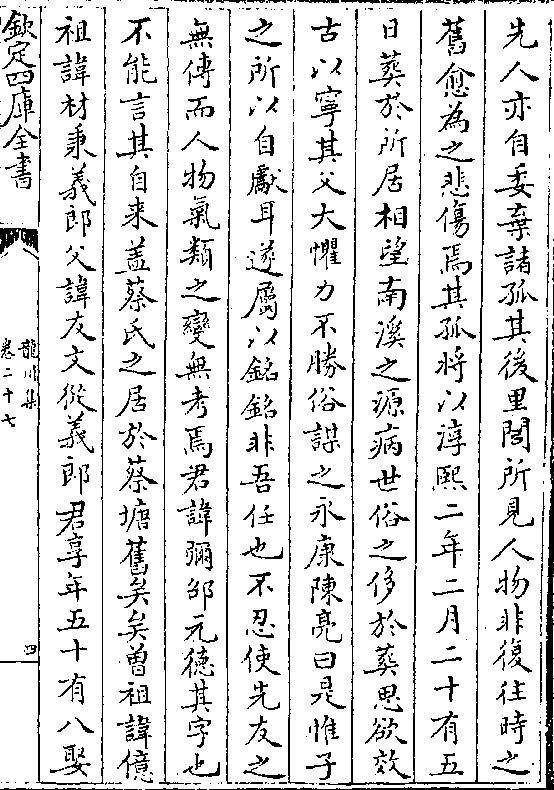 先人亦自委棄諸孤其後里閭所見人物非復往時之
舊愈為之悲傷焉其孤將以淳熙二年二月二十有五
日葬於所居相望南溪之源病世俗之侈於葬思欲效
古以寧其父大懼力不勝俗謀之永康陳亮曰是惟子
之所以自處耳遂屬以銘銘非吾任也不忍使先友之
無傳而人物氣類之變無考焉君諱彌邵元德其字也
不能言其自来盖蔡氏之居於蔡塘舊矣矣曽祖諱億
祖諱材秉義郎父諱友文從義郎君享年五十有八娶
欽定四庫全書
龍川集
卷二十七
四